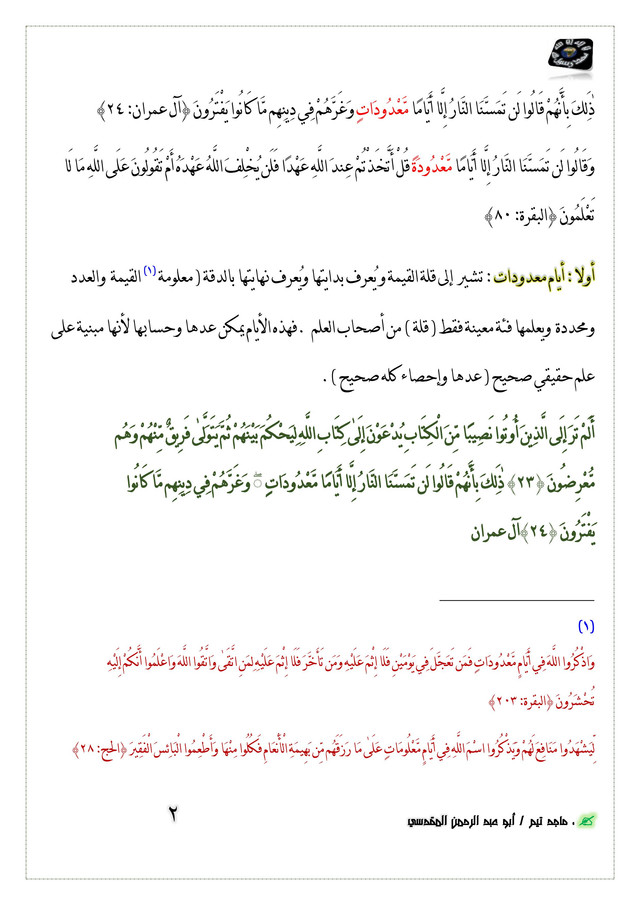 ذَٰلِكَ بِأَنَّهُمْ قَالُوا لَن تَمَسَّنَا النَّارُ إِلَّا أَيَّامًا مَّعْدُودَاتٍ وَغَرَّهُمْ فِي دِينِهِم مَّا كَانُوا يَفْتَرُونَ ﴿آل عمران: ٢٤﴾
وَقَالُوا لَن تَمَسَّنَا النَّارُ إِلَّا أَيَّامًا مَّعْدُودَةً قُلْ أَتَّخَذْتُمْ عِندَ اللَّهِ عَهْدًا فَلَن يُخْلِفَ اللَّهُ عَهْدَهُ أَمْ تَقُولُونَ عَلَى اللَّهِ مَا لَا
تَعْلَمُونَ ﴿البقرة: ٨٠﴾
أولا : أيام معدودات : تشير إلى قلة القيمة ويُعرف بدايتها ويُعرف نهايتها بالدقة ( معلومة (١) القيمة والعدد
ومحددة ويعلمها فئة معينة فقط ( قلة ) من أصحاب العلم . فهذه الأيام يمكن عدها وحسابها لأنها مبنية على
علم حقيقي صحيح ( عدها وإحصاء كله صحيح ) .
أَلَمْ تَرَ إِلَى الَّذِينَ أُوتُوا نَصِيبًا مِّنَ الْكِتَابِ يُدْعَوْنَ إِلَىٰ كِتَابِ اللَّهِ لِيَحْكُمَ بَيْنَهُمْ ثُمَّ يَتَوَلَّىٰ فَرِيقٌ مِّنْهُمْ وَهُم
مُّعْرِضُونَ ﴿٢٣﴾ ذَٰلِكَ بِأَنَّهُمْ قَالُوا لَن تَمَسَّنَا النَّارُ إِلَّا أَيَّامًا مَّعْدُودَاتٍ ۖ وَغَرَّهُمْ فِي دِينِهِم مَّا كَانُوا
يَفْتَرُونَ ﴿٢٤﴾ آل عمران
(١)
وَاذْكُرُوا اللَّهَ فِي أَيَّامٍ مَّعْدُودَاتٍ فَمَن تَعَجَّلَ فِي يَوْمَيْنِ فَلَا إِثْمَ عَلَيْهِ وَمَن تَأَخَّرَ فَلَا إِثْمَ عَلَيْهِ لِمَنِ اتَّقَىٰ وَاتَّقُوا اللَّهَ وَاعْلَمُوا أَنَّكُمْ إِلَيْهِ
تُحْشَرُونَ ﴿البقرة: ٢٠٣﴾
لِّيَشْهَدُوا مَنَافِعَ لَهُمْ وَيَذْكُرُوا اسْمَ اللَّهِ فِي أَيَّامٍ مَّعْلُومَاتٍ عَلَىٰ مَا رَزَقَهُم مِّن بَهِيمَةِ الْأَنْعَامِ فَكُلُوا مِنْهَا وَأَطْعِمُوا الْبَائِسَ الْفَقِيرَ ﴿الحج: ٢٨﴾
. ماجد تيم / أبو عبد الرحمن المقدسي ٢